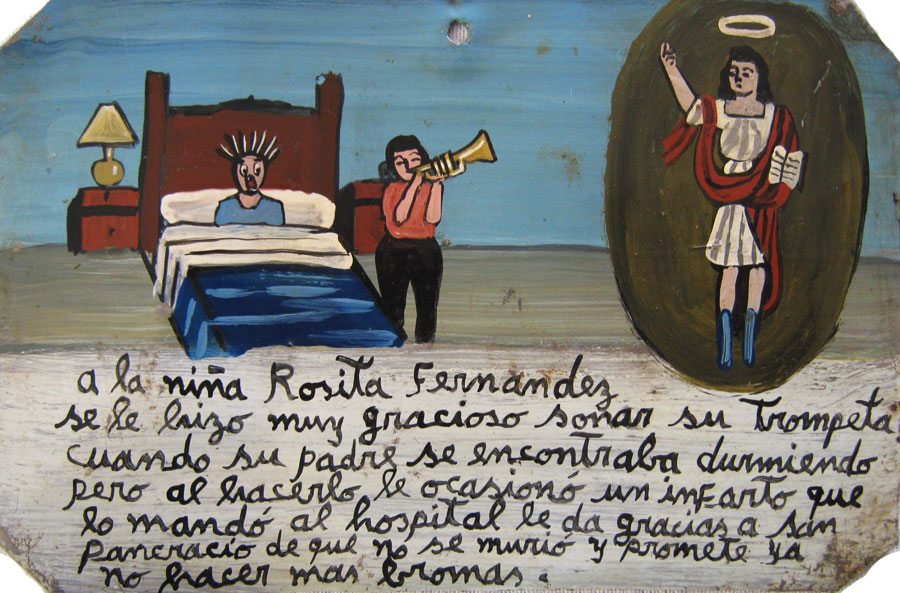 a la niña Rosita Fernandez
se le hizo muy gracioso soñar su trompeta
cuando su padre se encontraba durmiendo
pero al hacerlo le ocasionó un infarto que
lo mandó al hospital le da gracias a San
Pancracio de que no se murió y promete ya
no hacer mas bromas.